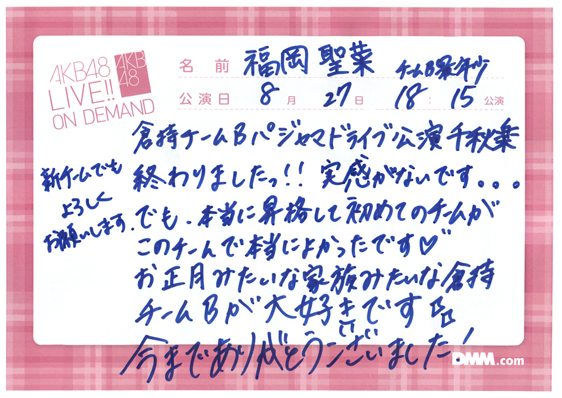 AKB48
LIVE!!
ON DEMAND
AKB
48
名前 福岡聖菜 チームB最年少
公演日 8月27日 18:15公演
倉持チームBパジャマドライブ公演千秋楽
終わりましたっ!! 実感がないです。。。
でも、本当に昇格して初めてのチームが
このチームで本当によかったです♡
お正月みたいな家族みたいな倉持
チームBが大好きです
今までありがとうございました!
新チームでも
よろしく
お願いします。
DMM.com